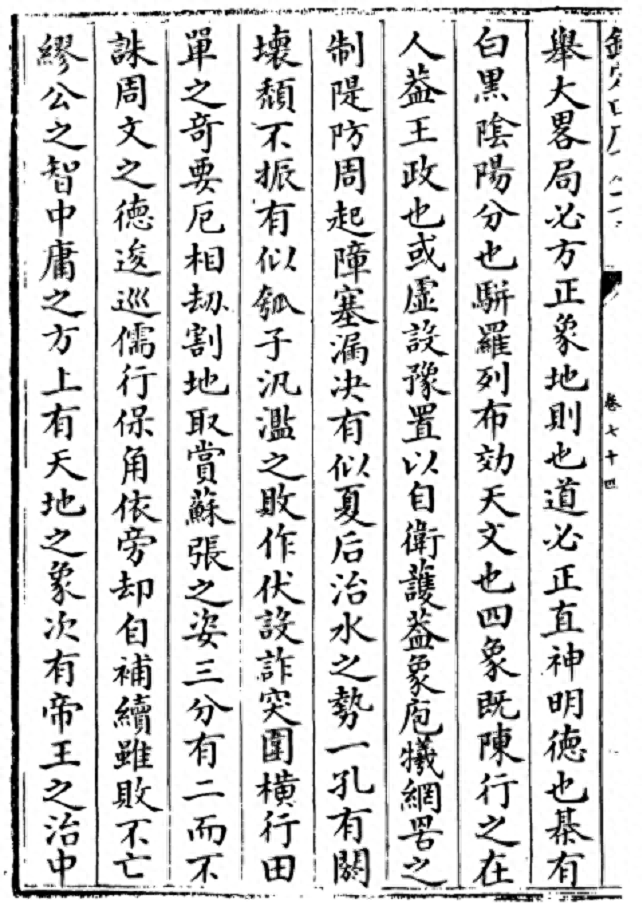 欽定四庫全書
卷七十四
舉大畧局必方正象地則也道必正直神明德也棊有
白黒隂陽分也駢羅列布効天文也四象既陳行之在
人葢王政也或虚設豫置以自衛護葢象庖犧網罟之
制隄防周起障塞漏决有似夏后治水之勢一孔有闕
壊頽不振有似瓠子汎濫之敗作伏設詐突圍横行田
單之竒要厄相刼割地取賞蘇張之姿三分有二而不
誅周文之德逡巡儒行保角依旁却自補續雖敗不亡
繆公之智中庸之方上有天地之象次有帝王之治中